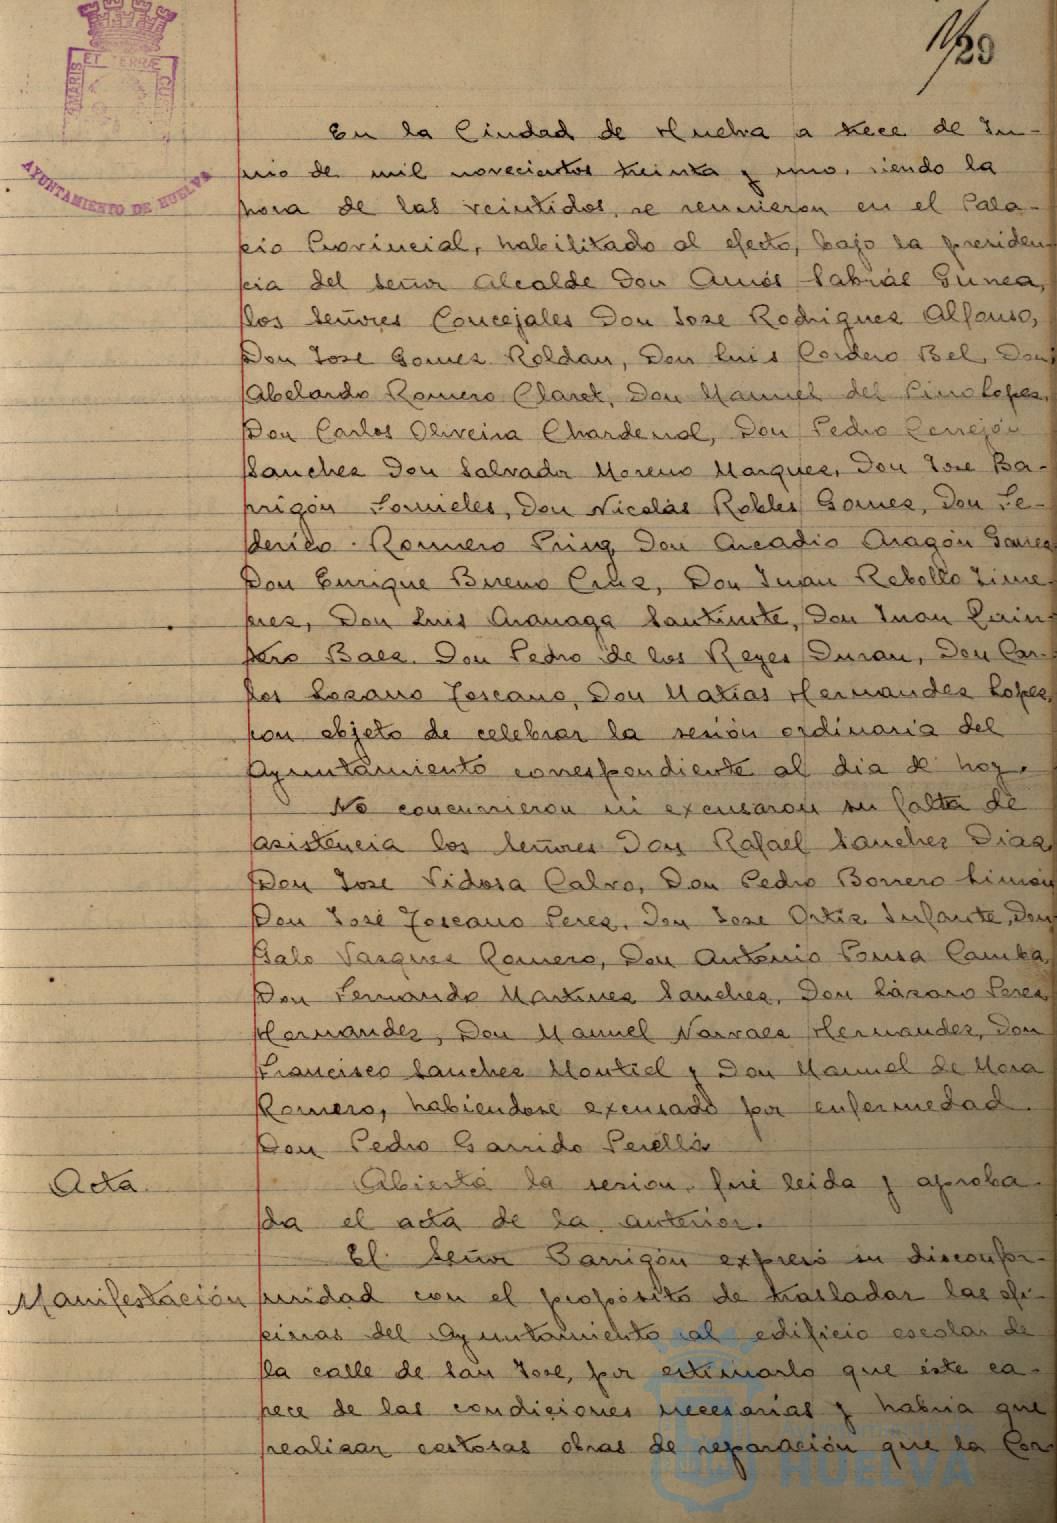 29
MARIS ET TERRÆ CUS
AYUNTAMIENTO DE HUELVA
En la Ciudad de Huelva a trece de Ju-
nio de mil novecientos treinta y uno, siendo la
hora de las veintidos, se reunieron en el Pala-
cio Provincial, habilitado al efecto, bajo la presiden-
cia del Señor Alcalde Don Amós Sabrás Gurrea,
los Señores Concejales Don Jose Rodriguez Alfonso,
Don Jose Gomez Roldan, Don Luis Cordero Bel, Don
Abelardo Romero Claret, Don Manuel del Pino Lopez,
Don Carlos Oliveira Chardenal, Don Pedro Cerrejón
Sanchez Don Salvador Moreno Marquez, Don Jose Ba-
rrigón Fornieles, Don Nicolás Robles Gomez, Don Fe-
derico Romero Don Arcadio Aragón Gomez
Don Enrique Bueno Cruz, Don Juan Rebollo Jime-
nez, Don Luis Don Juan Quin-
tero Baez. Don Pedro de los Reyes Duran, Don Car-
los Lozano Toscano, Don Matias Hernandez Lopez,
con objeto de celebrar la sesión ordinaria del
Ayuntamiento correspondiente al dia de hoy.
No concurrieron ni excusaron su falta de
asistencia los Señores Don Rafael Sanchez Diaz
Don Jose Vidosa Calvo, Don Pedro Borrero Limón
Don José Toscano Perez, Don Jose Ortiz Infante, Don
Galo Vazquez Romero, Don Antonio Pousa Camba,
Don Fernando Martinez Sanchez, Don Lázaro Perez
Hernandez, Don Manuel Narvaez Hernandez, Don
Francisco Sanchez Montiel y Don Manuel de Mora
Romero, habiendose excusado por enfermedad
Don Pedro Garrido Perelló
Acta. Abierta la sesion, fué leida y aproba-
da el acta de la anterior.
El Señor Barrigón expresó su disconfor-
Manifestación midad con el propósito de trasladar las ofi-
cinas del Ayuntamiento al edificio escolar de
la calle de San Jose, por estimarlo que éste ca-
rece de las condiciones necesarias y habria que
realizar costosas obras de reparación que la Cor-
HUELVA